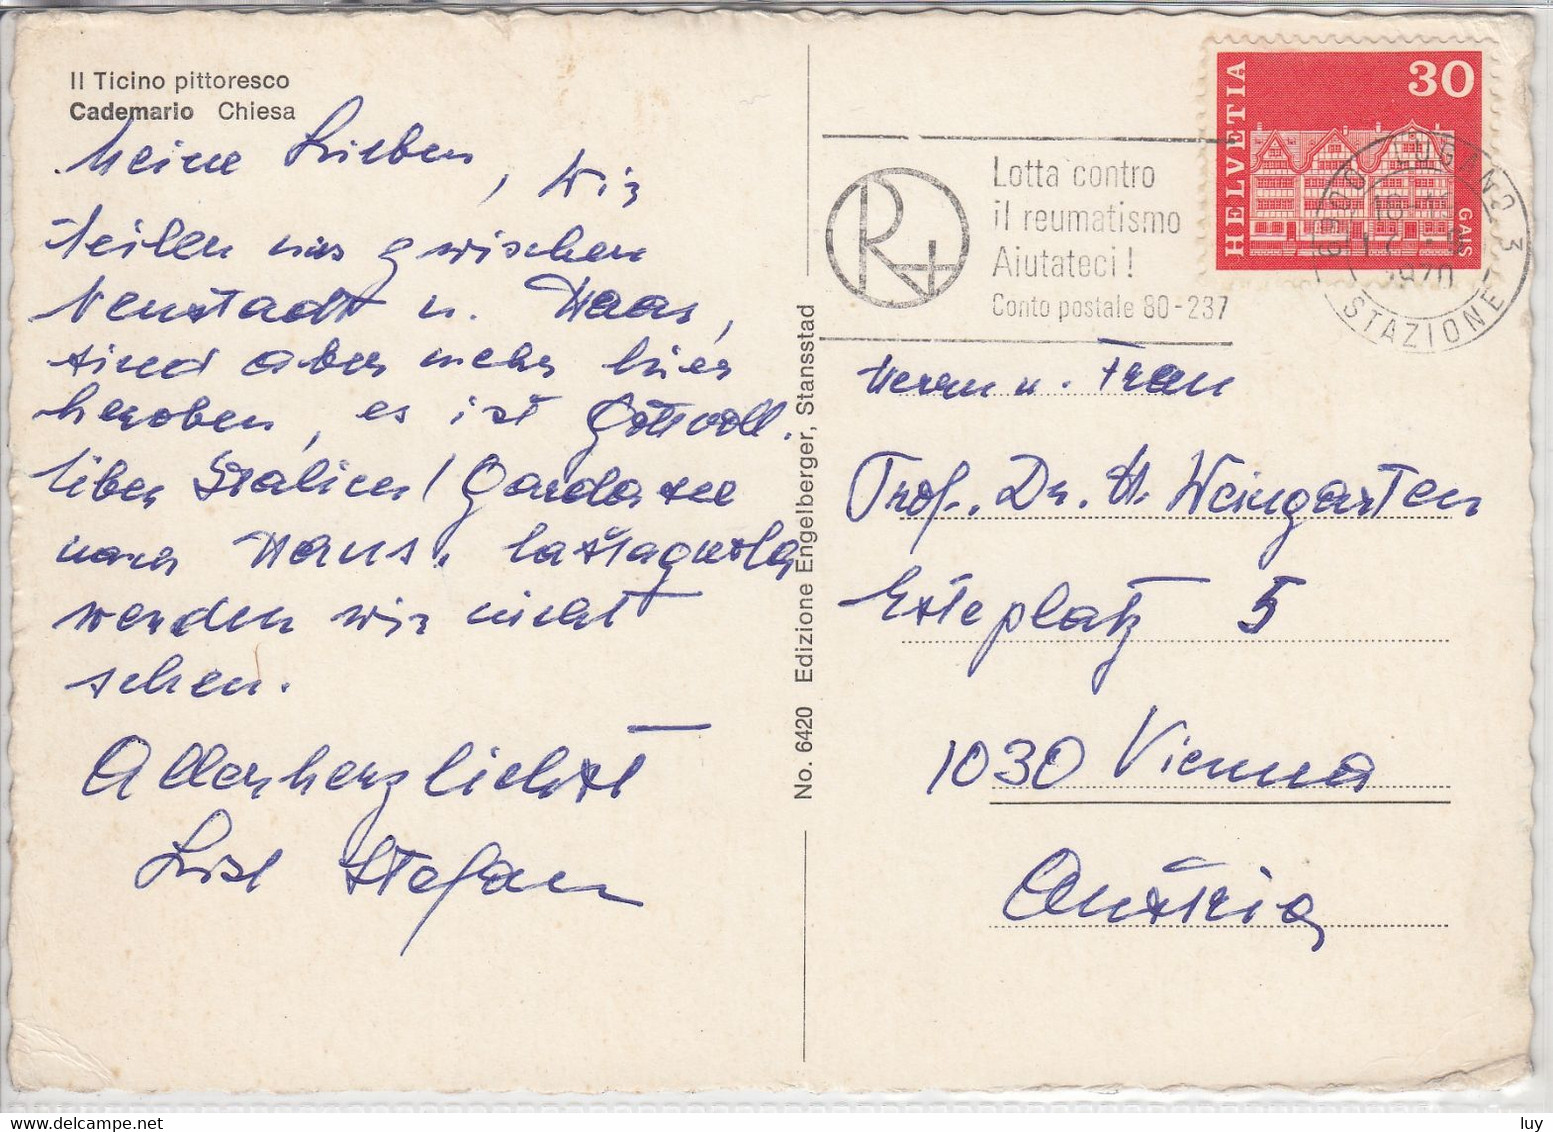 Il Ticino pittoresco
Cademario Chiesa
Meine Lieben, Wir
teilen uns zwischen
Neustadt u. Haas,
sind aber mehr hier
heroben, es ist Gottvoll.
Über Italien / Gardasee
nach Haus. Castagnola
werden wir nicht
sehen.
Allerherzlichst
Lisl Stefan
No. 6420 Edizione Engelberger, Stansstad
R+
Lotta contro
il reumatismo
Aiutateci!
Conto postale 80-237
HELVETIA
30
GAIS
6900 LUGANO 3
1970
STAZIONE
Herrn u. Frau
Prof. Dr. H. Weingarten
Esteplatz 5
1030 Vienna
Austria
luy